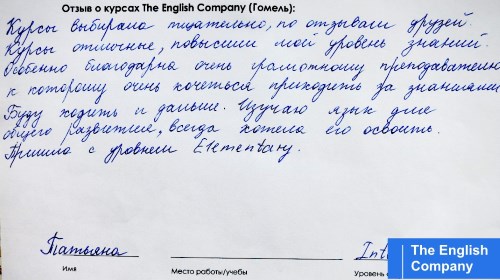 Отзыв о курсах The English Company (Гомель):
Курсы выбирала тщательно, по отзывам друзей.
Курсы отличные, повысили мой уровень знаний.
Особенно благодарна очень грамотному преподавателю
к которому очень хочеться приходить за знаниями.
Буду ходить и дальше. Изучаю язык для
общего развития, всегда хотела его освоить.
Пришла с уровнем Elementary.
Татьяна
Имя
Место работы/учебы
Уровень
The English
Company